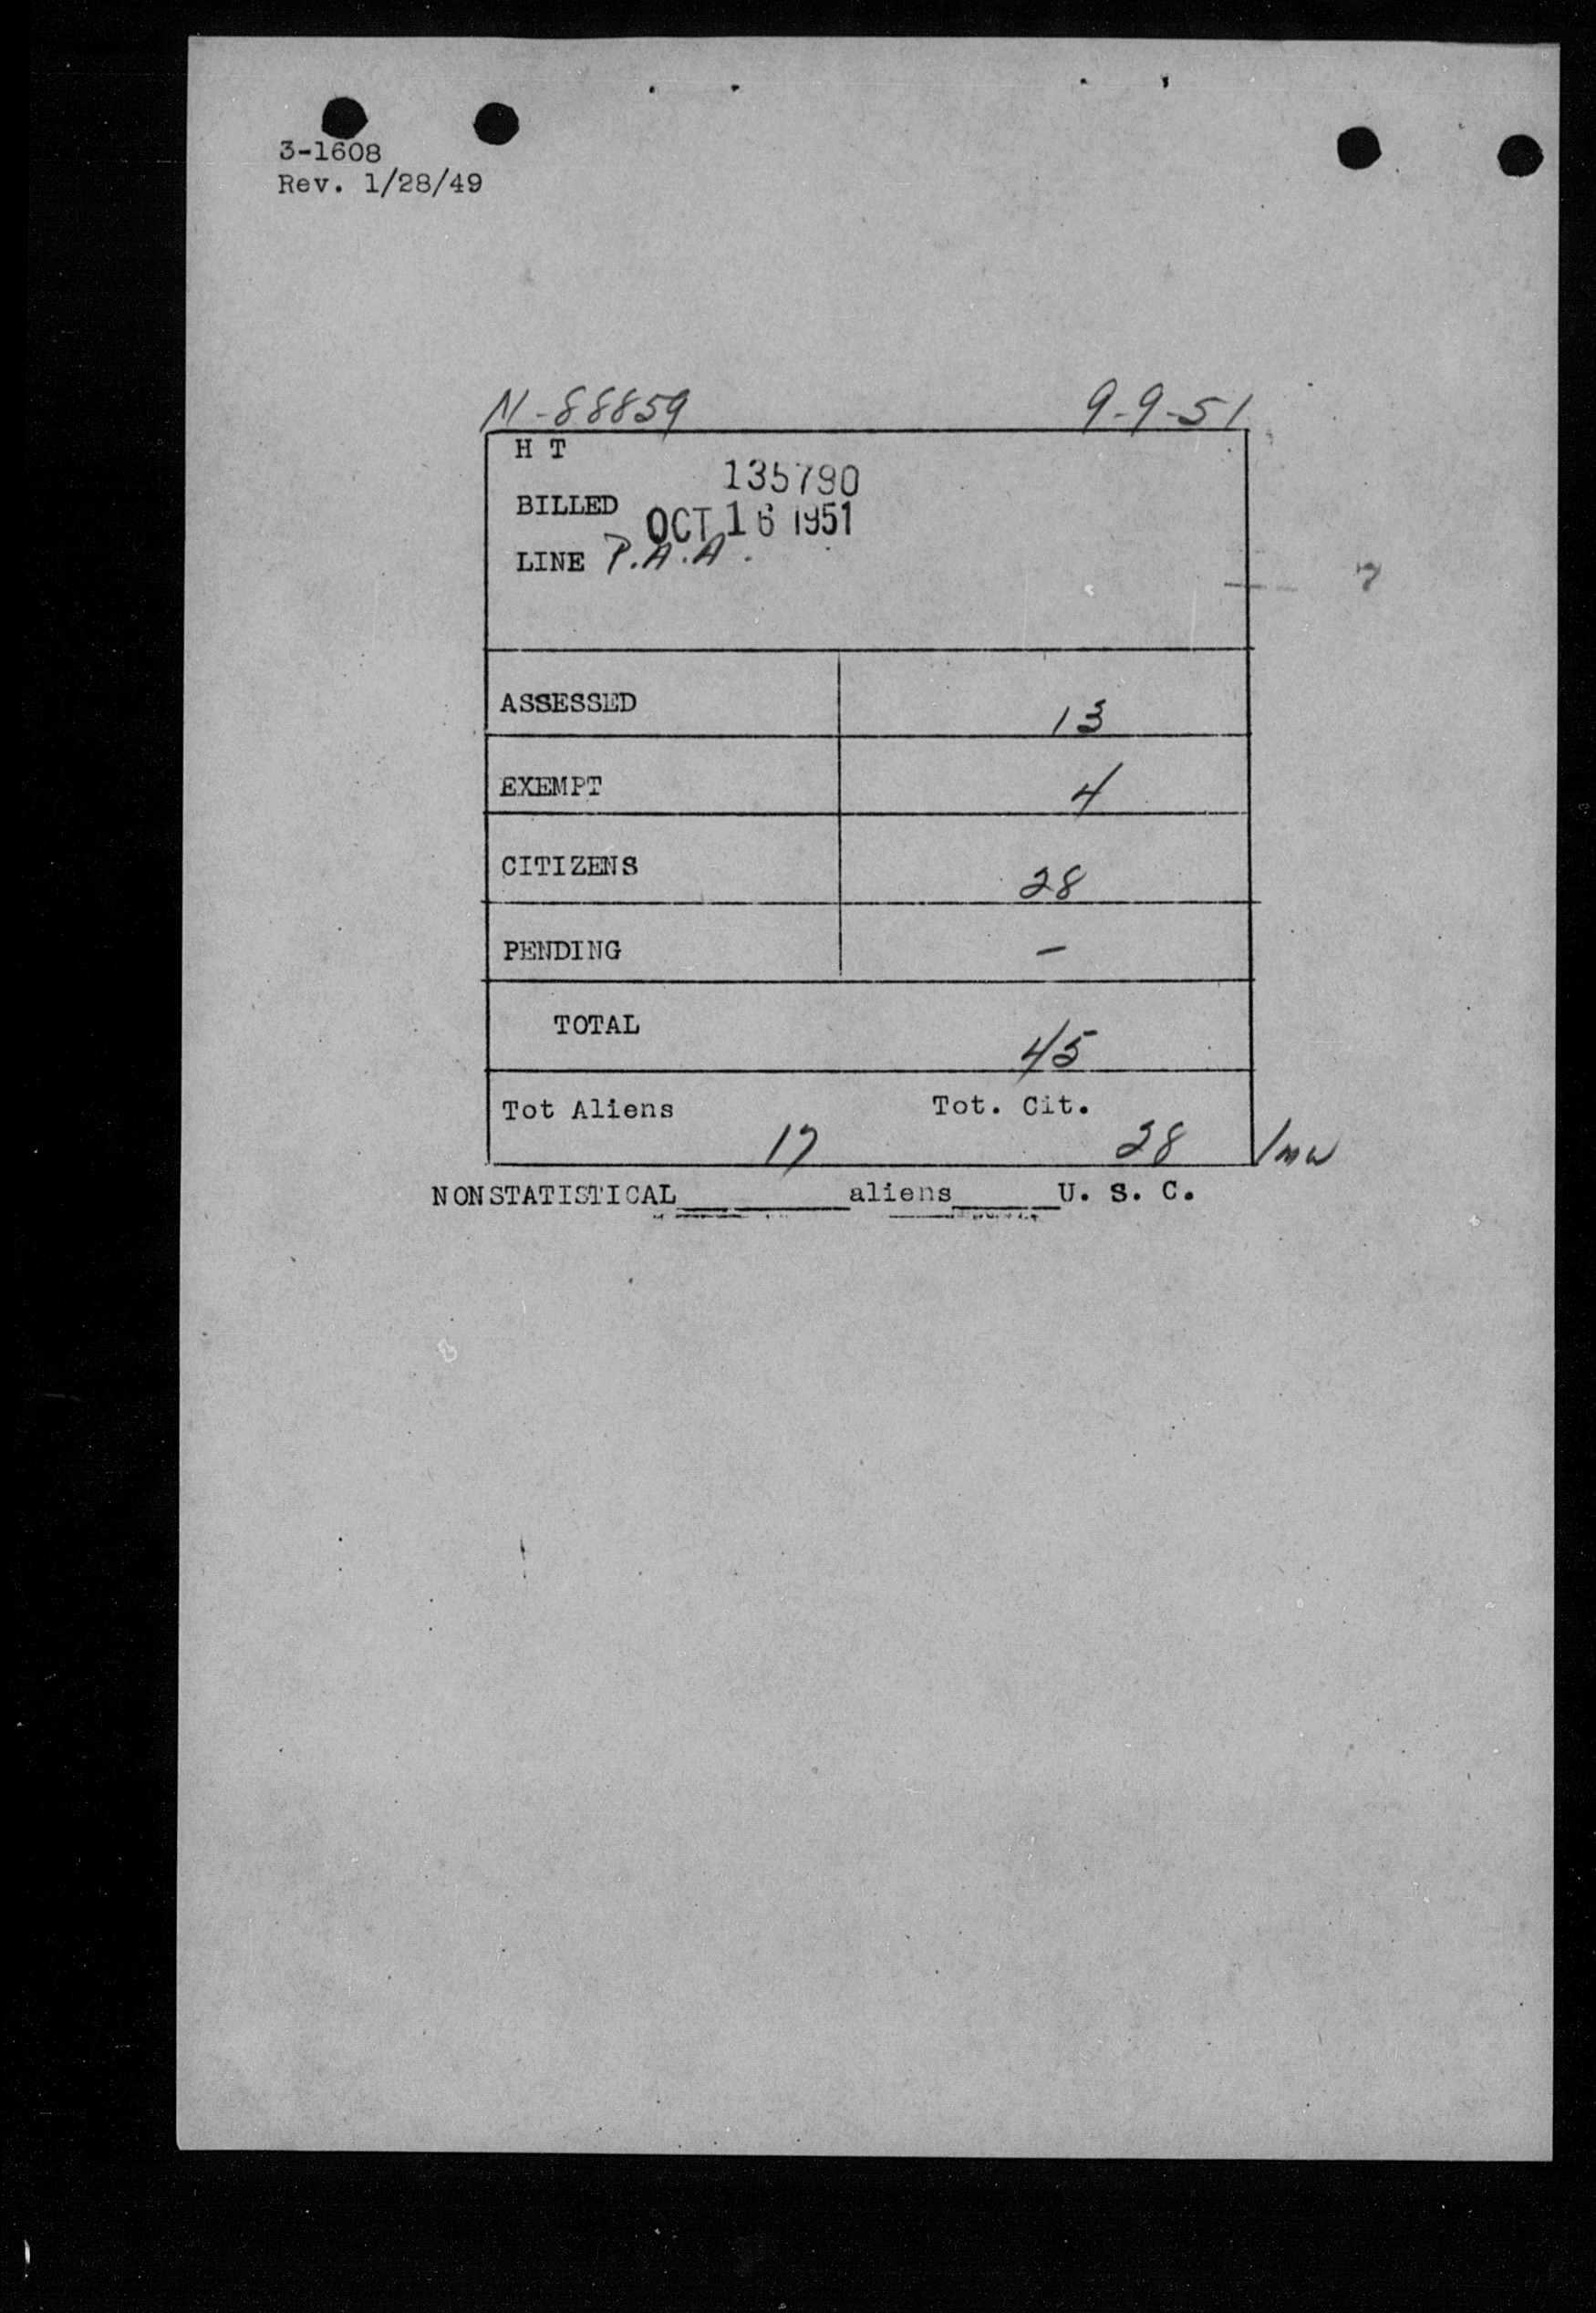 3-1608
Rev. 1/28/49
N-88859 9-9-51
H T
135790
BILLED OCT 16 1951
LINE P.A.A.
ASSESSED 13
EXEMPT 4
CITIZENS 28
PENDING -
TOTAL 45
Tot Aliens 17 Tot. Cit. 28 /mw
NONSTATISTICAL________aliens_____U. S. C.